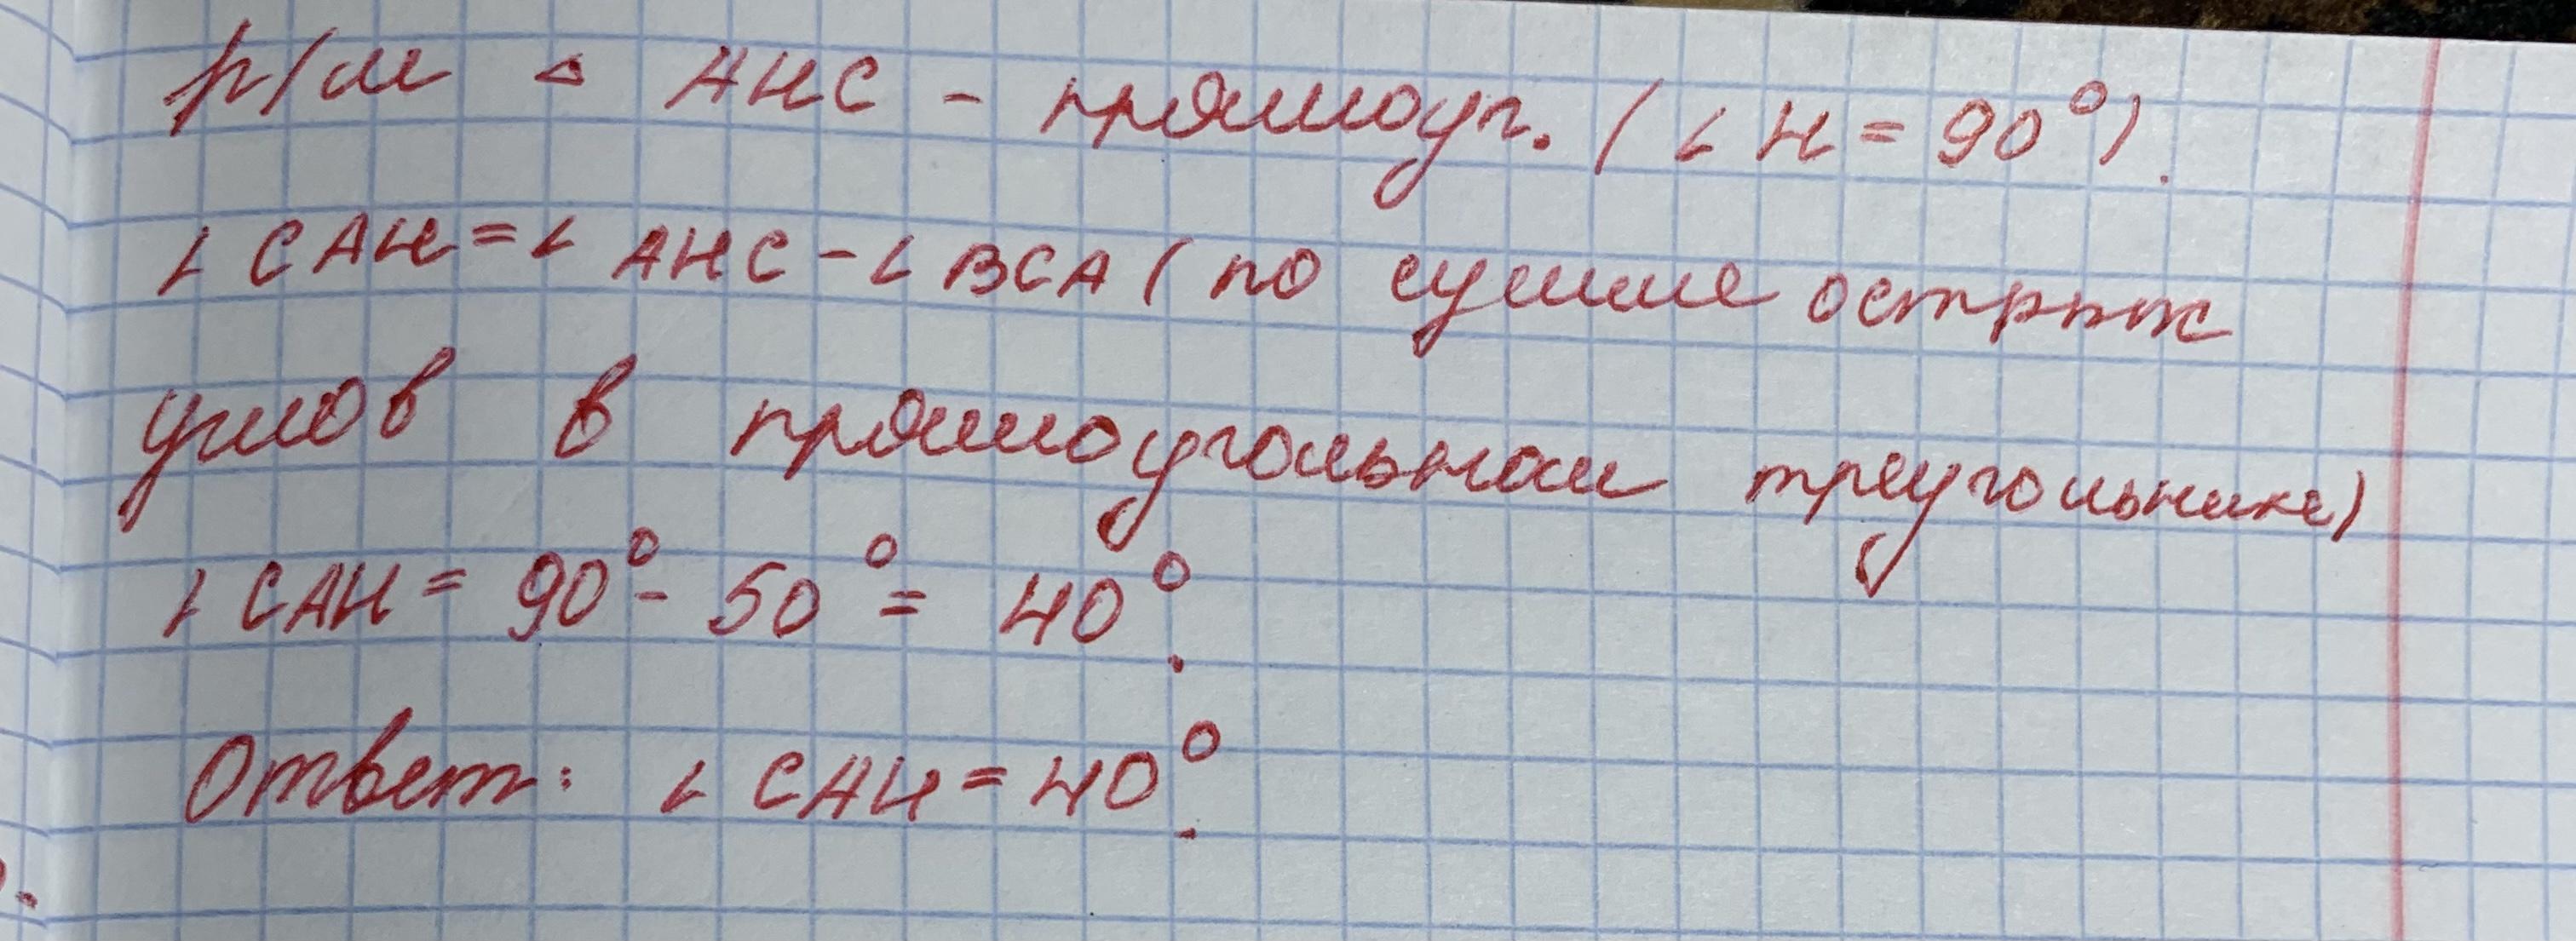 р/м △ AHC - прямоуг. (∠ H = 90°).
∠ CAH = ∠ AHC - ∠ BCA ( по сумме острых
углов в прямоугольном треугольнике)
∠ CAH = 90° - 50° = 40°.
Ответ: ∠ CAH = 40°.